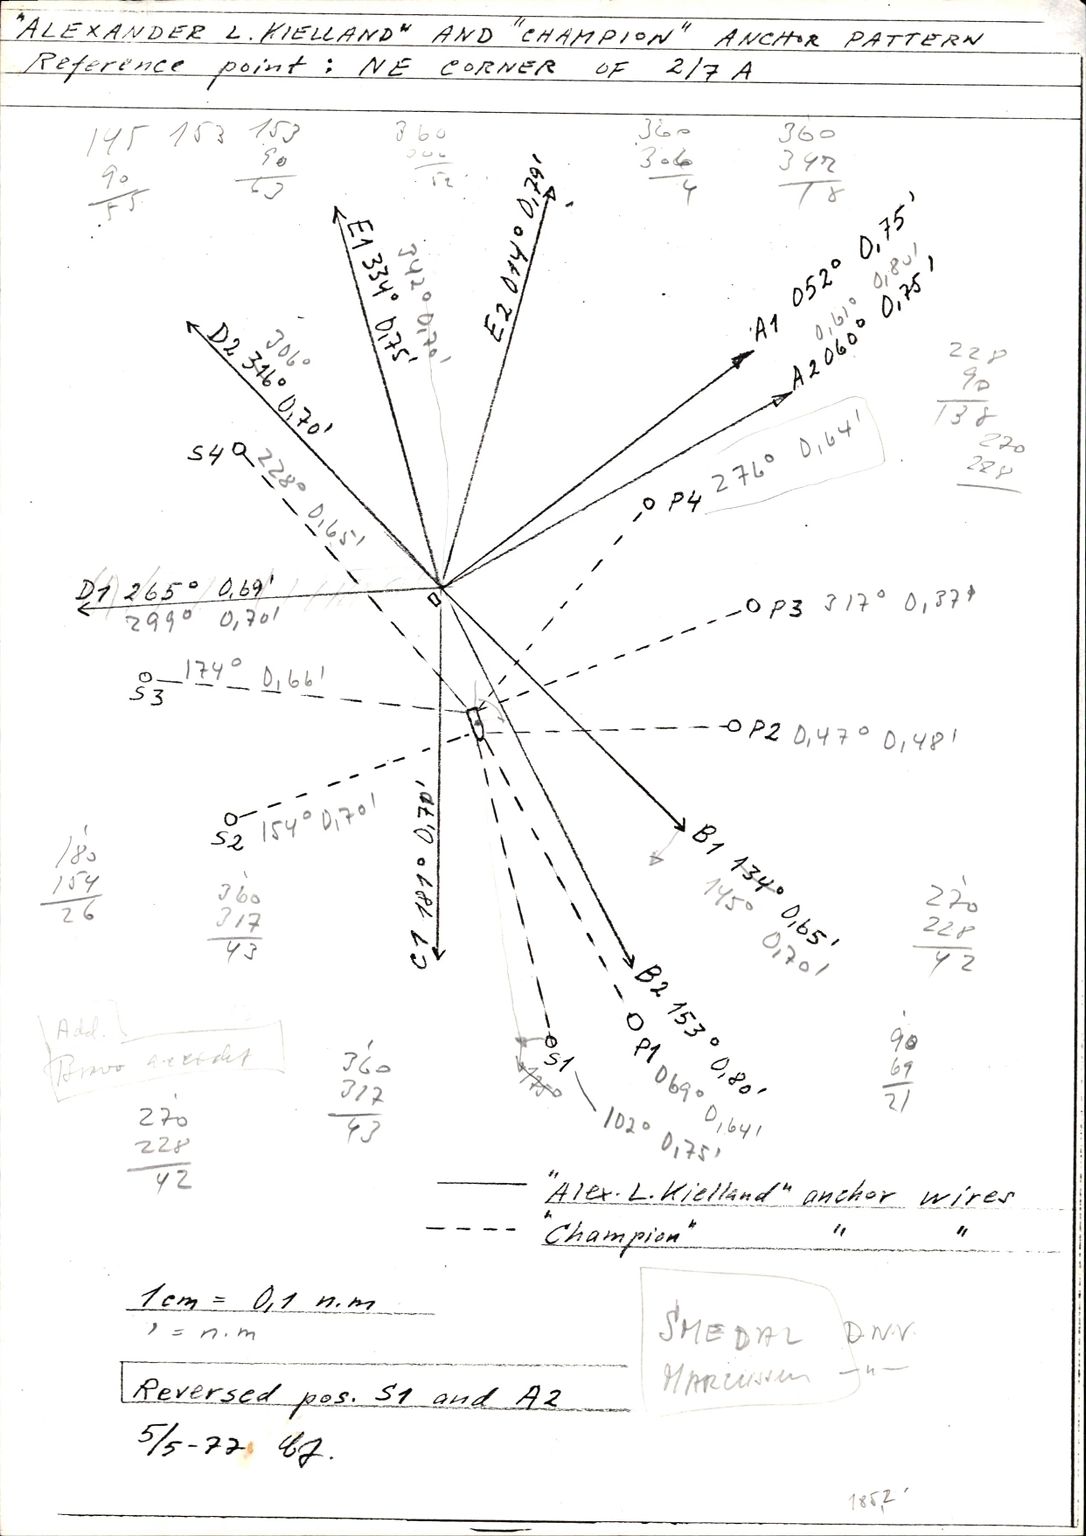 "ALEXANDER L. KIELLAND" AND "CHAMPION" ANCHOR PATTERN
Reference point: NE CORNER OF 2/7 A
145 153 153 360 360 360
90 90 306 342
55 63 52 4 18
E1 334° 0,75'
342° 0,70'
E2 014° 0,79'
A1 052° 0,75'
0,61° 0,80'
A2 060° 0,75'
D2 316° 0,70'
306°
228
90
138
270
228
S4 228° 0,65'
P4 276° 0,64'
D1 265° 0,69'
299° 0,70'
P3 317° 0,37'
S3 174° 0,66'
P2 0,47° 0,48'
S2 154° 0,70'
C1 181° 0,70'
B1 134° 0,65'
145° 0,70'
180
154
26
360
317
43
270
228
42
B2 153° 0,80'
P1 069° 0,64'
S1 102° 0,75'
Add.
Bravo
360
317
43
90
69
21
270
228
42
"Alex. L. Kielland" anchor wires
"Champion" " "
1cm = 0,1 n.m
' = n.m
SMEDAL D.N.V.
MARCUSSEN —"—
Reversed pos. S1 and A2
5/5-77
1852'